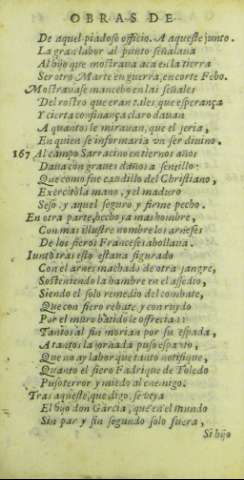 OBRAS DE
De aquel piadoso officio. A aqueste junto.
La gran labor al punto señalaua
Al hijo que mostraua acá en la tierra
Ser otro Marte en guerra, en corte Febo.
Mostrauase mancebo en las señales
Del rostro que eran tales que esperança
Y cierta confiança claro dauan
A quantos le mirauan, que el seria,
En quien se informaria vn ser diuino.
167 Al campo Sarracino en tiernos años
Daua con graues daños a sentillo:
Que como fue caudillo del Christiano,
Exercitó la mano, y el maduro
Seso, y aquel seguro y firme pecho.
En otra parte, hecho ya mas hombre,
Con mas illustre nombre los arneses
De los fieros Franceses abollaua.
Iunto tras esto estaua figurado
Con el arnes machado de otra sangre,
Sosteniendo la hambre en el assedio,
Siendo el solo remedio del combate,
Que con fiero rebate, y con ruydo
Por el muro batido le offrecian:
Tantos al fin morian por su espada,
A tantos la jornada puso espanto,
Que no ay labor que tanto notifique,
Quanto el fiero Fadrique de Toledo
Puso terror y miedo al enemigo.
Tras aqueste, que digo, se veya
El hijo don Garcia, que en el mundo
Sin par y sin segundo solo fuera,
Si hijo